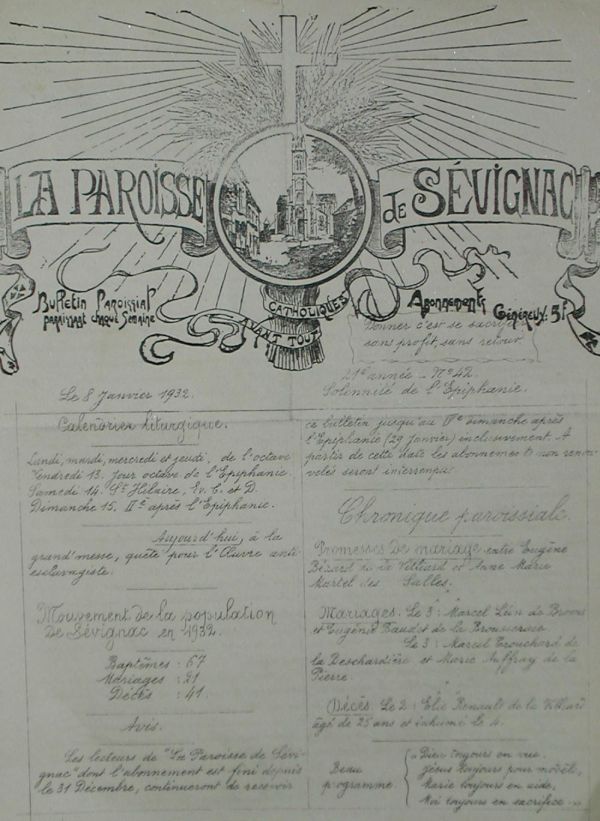 LA PAROISSE de SÉVIGNAC
Bulletin Paroissial
paraissant chaque Semaine
CATHOLIQUES
AVANT TOUT
Abonnement
Généreux: 5f
Donner c'est se sacrifier
sans profit, sans retour
Le 8 Janvier 1932.
21e année - No 42.
Solennité de l'Epiphanie.
Calendrier liturgique.
Lundi, mardi, mercredi et jeudi, de l'octave
Vendredi 13. Jour octave de l'Epiphanie.
Samedi 14. St Hilaire, Ev. C. et D.
Dimanche 15. IIe après l'Epiphanie.
Aujourd'hui, à la
grand'messe, quête pour l'Œuvre anti-
esclavagiste.
Mouvement de la population
de Sévignac en 1932.
Baptêmes : 67
Mariages : 21
Décès : 41.
Avis.
Les lecteurs de "La Paroisse de Sévi-
gnac" dont l'abonnement est fini depuis
le 31 Décembre, continueront de recevoir
ce bulletin jusqu'au IVe dimanche après
l'Epiphanie (29 Janvier) inclusivement. A
partir de cette date les abonnements non renou-
velés seront interrompus.
Chronique paroissiale.
Promesses de mariage entre Eugène
Bézard de la Villéard et Anne Marie
Martel des Salles.
Mariages. Le 3 : Marcel Lién de Broons
et Eugénie Baudet de la Broussecroce
Le 3 : Marcel Trouchard de
la Deschardière et Marie Auffray de la
Pierre.
Décès. Le 2 : Elie Renault de la
âgé de 25 ans et inhumé le 4.
Beau
programme.
"Dieu toujours en vue.
Jésus toujours pour modèle,
Marie toujours en aide,
Moi toujours en sacrifice."